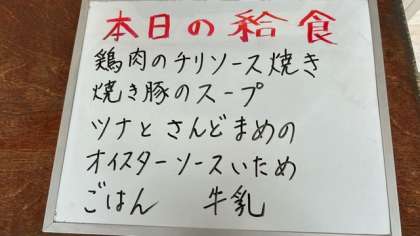 本日の給食
鶏肉のチリソース焼き
焼き豚のスープ
ツナとさんどまめの
オイスターソースいため
ごはん 牛乳